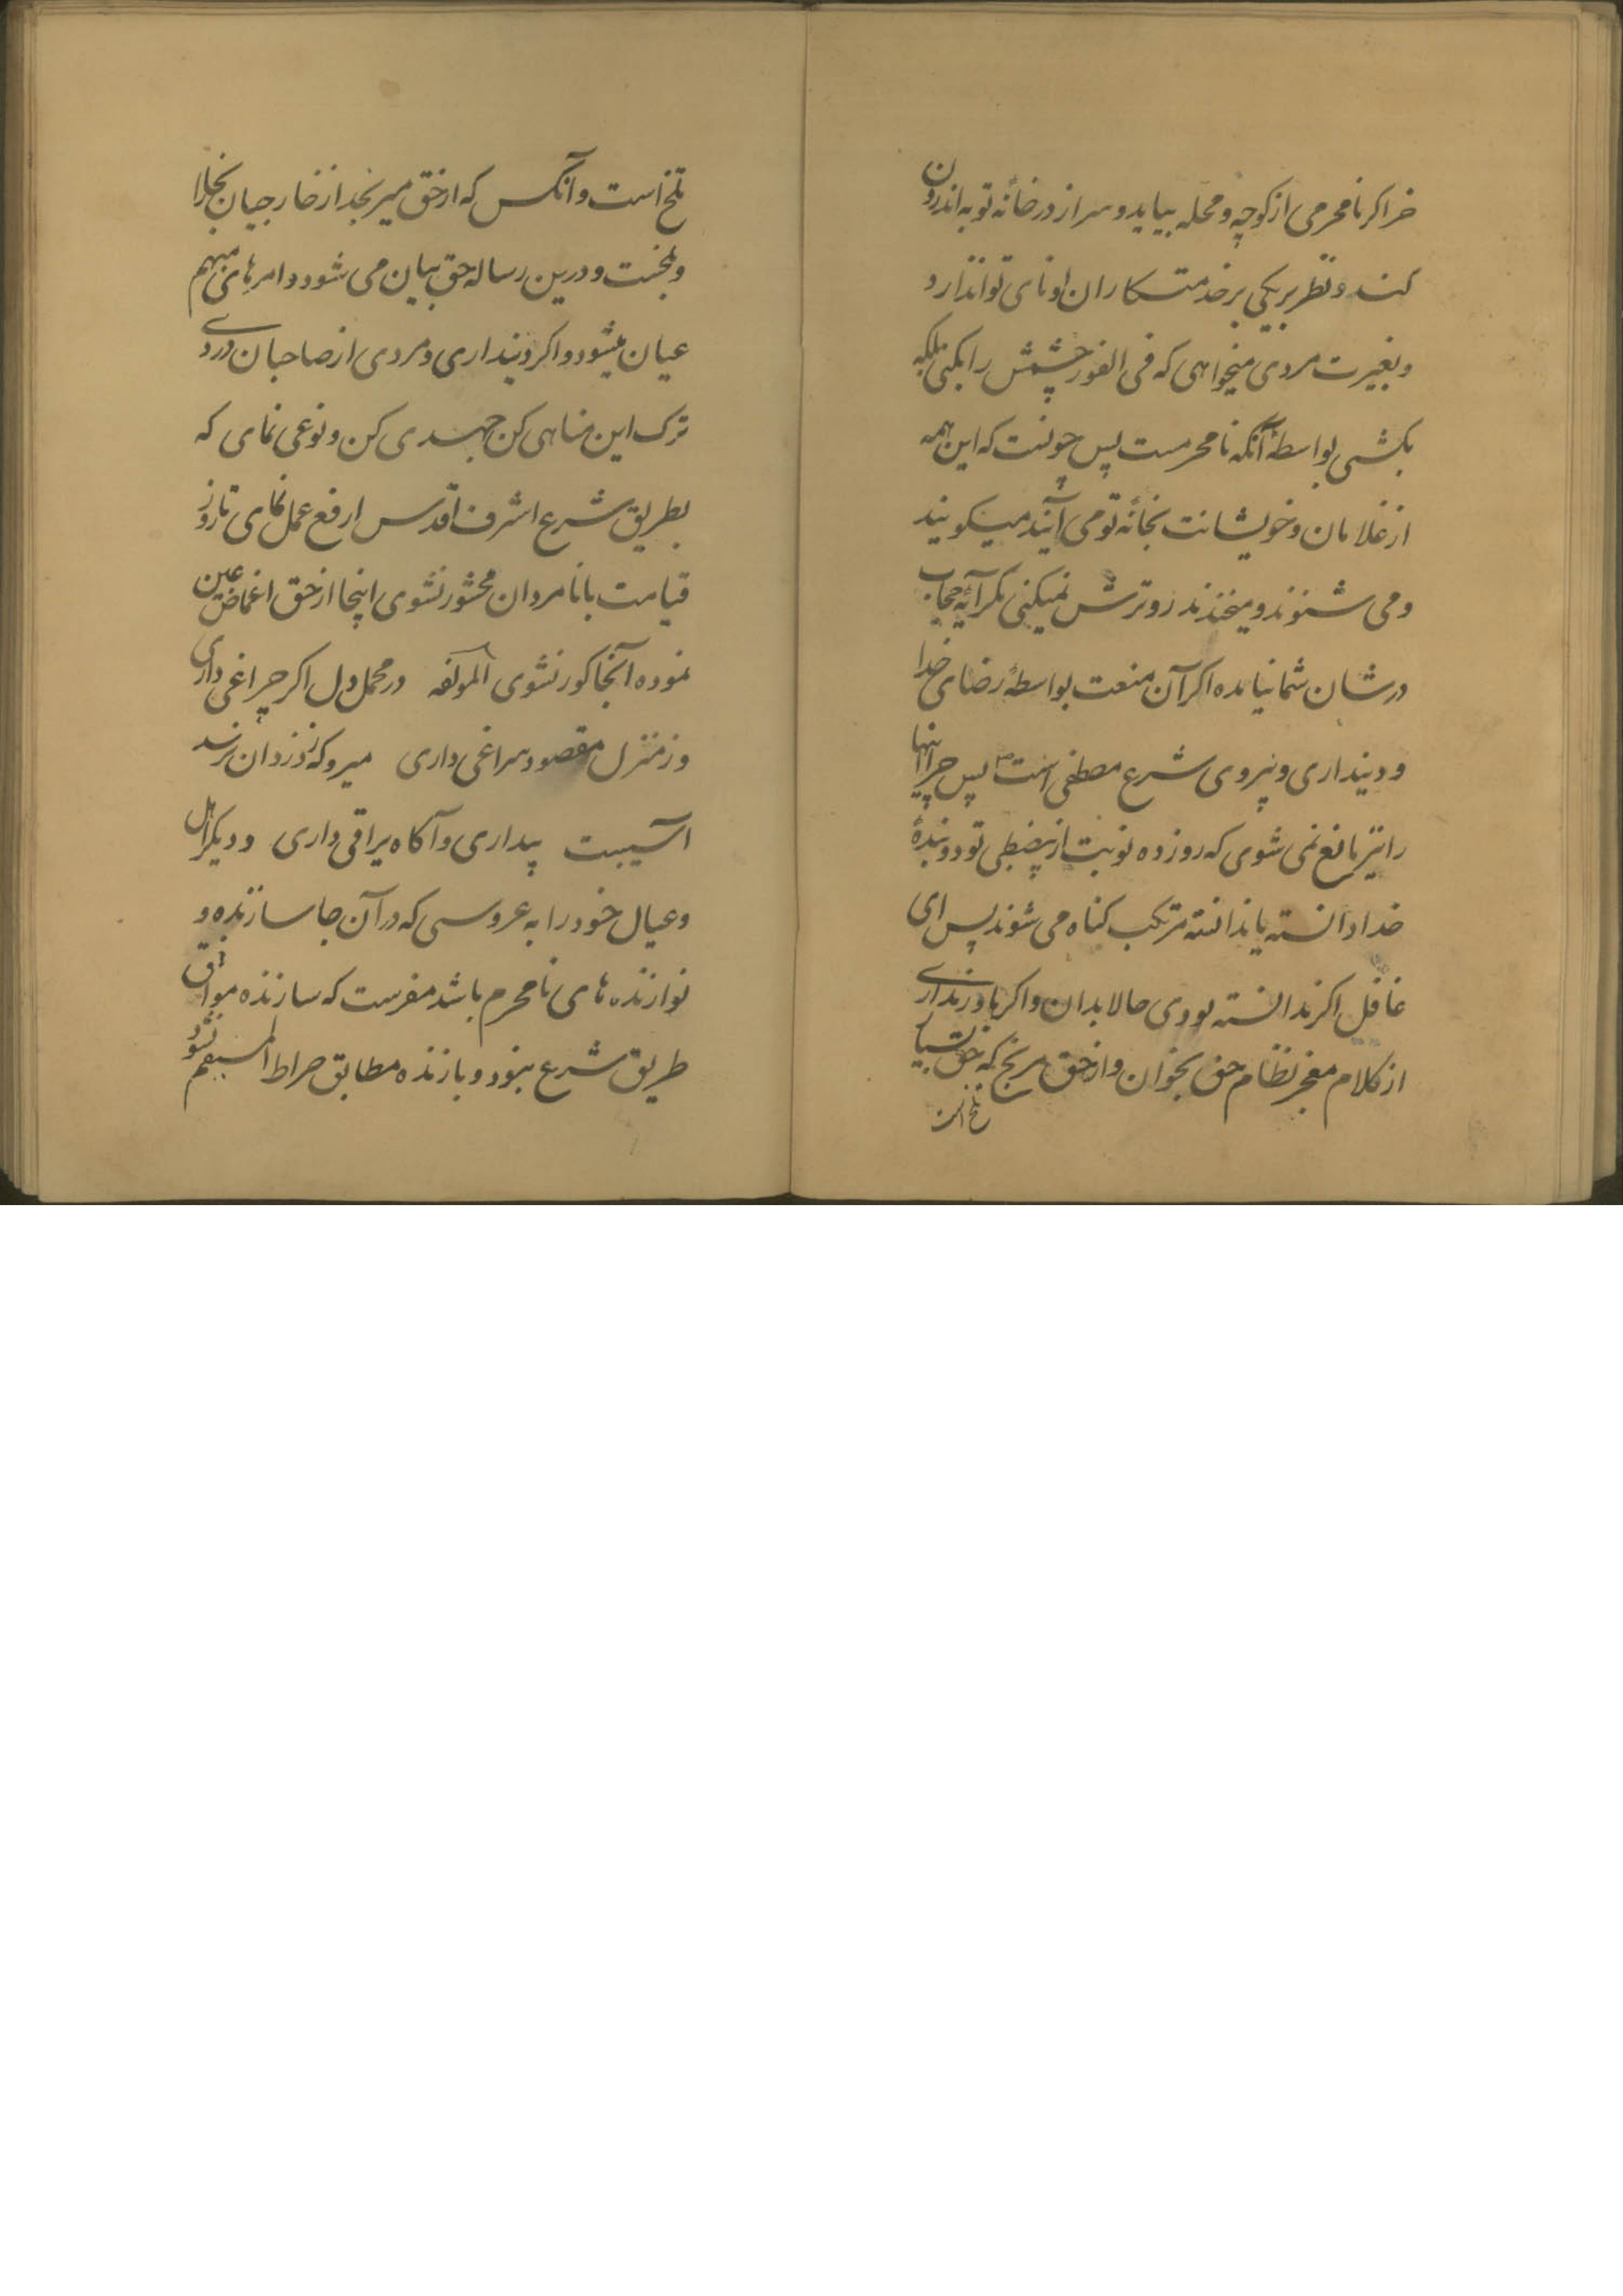 خر اکر نامحرمی از کوچه و محله بیاید و سر از در خانهٔ تو به اندرون
کند و نظر بر یکی بر خدمتکاران ادنای تو اندازد
و بغیرت مردی میخواهی که فی الفور چشمش را بکنی بلکه
بکشی بواسطهٔ آنکه نامحرمست پس چونست که این همه
از غلامان و خویشانت بخانهٔ تو می آیند میکویند
و می شنوند و میخندند رو ترش نمیکنی مکر آیهٔ حجاب
در شان شما نیامده اکر آن منعت بواسطهٔ رضای خدا
و دینداری و پیروی شرع مصطفی است پس چرا اینها
را نیز مانع نمی شوی که روز ده نوبت از بیضبطی تو دو بندهٔ
خدا دانسته یا ندانسته مرتکب کناه می شوند پس ای
غافل اکر ندانسته بودی حالا بدان و اکر باور نداری
از کلام معجز نظام حق بخوان و از حق مرنج که حق بسیار
تلخ است
تلخ است و آنکس که از حق میرنجد از خارجیان
و درین رساله حق بیان می شود و امرهای مبهم
عیان میشود و اکر دینداری و مردی از صاحبان دردی
ترک این مناهی کن جهدی کن و نوعی نمای که
بطریق شرع اشرف اقدس ارفع عمل نمای تا روز
قیامت با نامردان محشور نشوی اینجا از حق اغماض عین
نموده آنجا کور نشوی لمؤلفه در محمل دل اکر چراغی داری
وز منزل مقصود سراغی داری میرو که ز دزدان نرسد
آسیبت بیداری و آکاه یراقی داری و دیکر اهل
و عیال خود را به عروسی که در آن جا سازنده و
نوازنده های نامحرم باشد مفرست که سازنده موافق
طریق شرع نبود و بازنده مطابق صراط المستقیم نشود